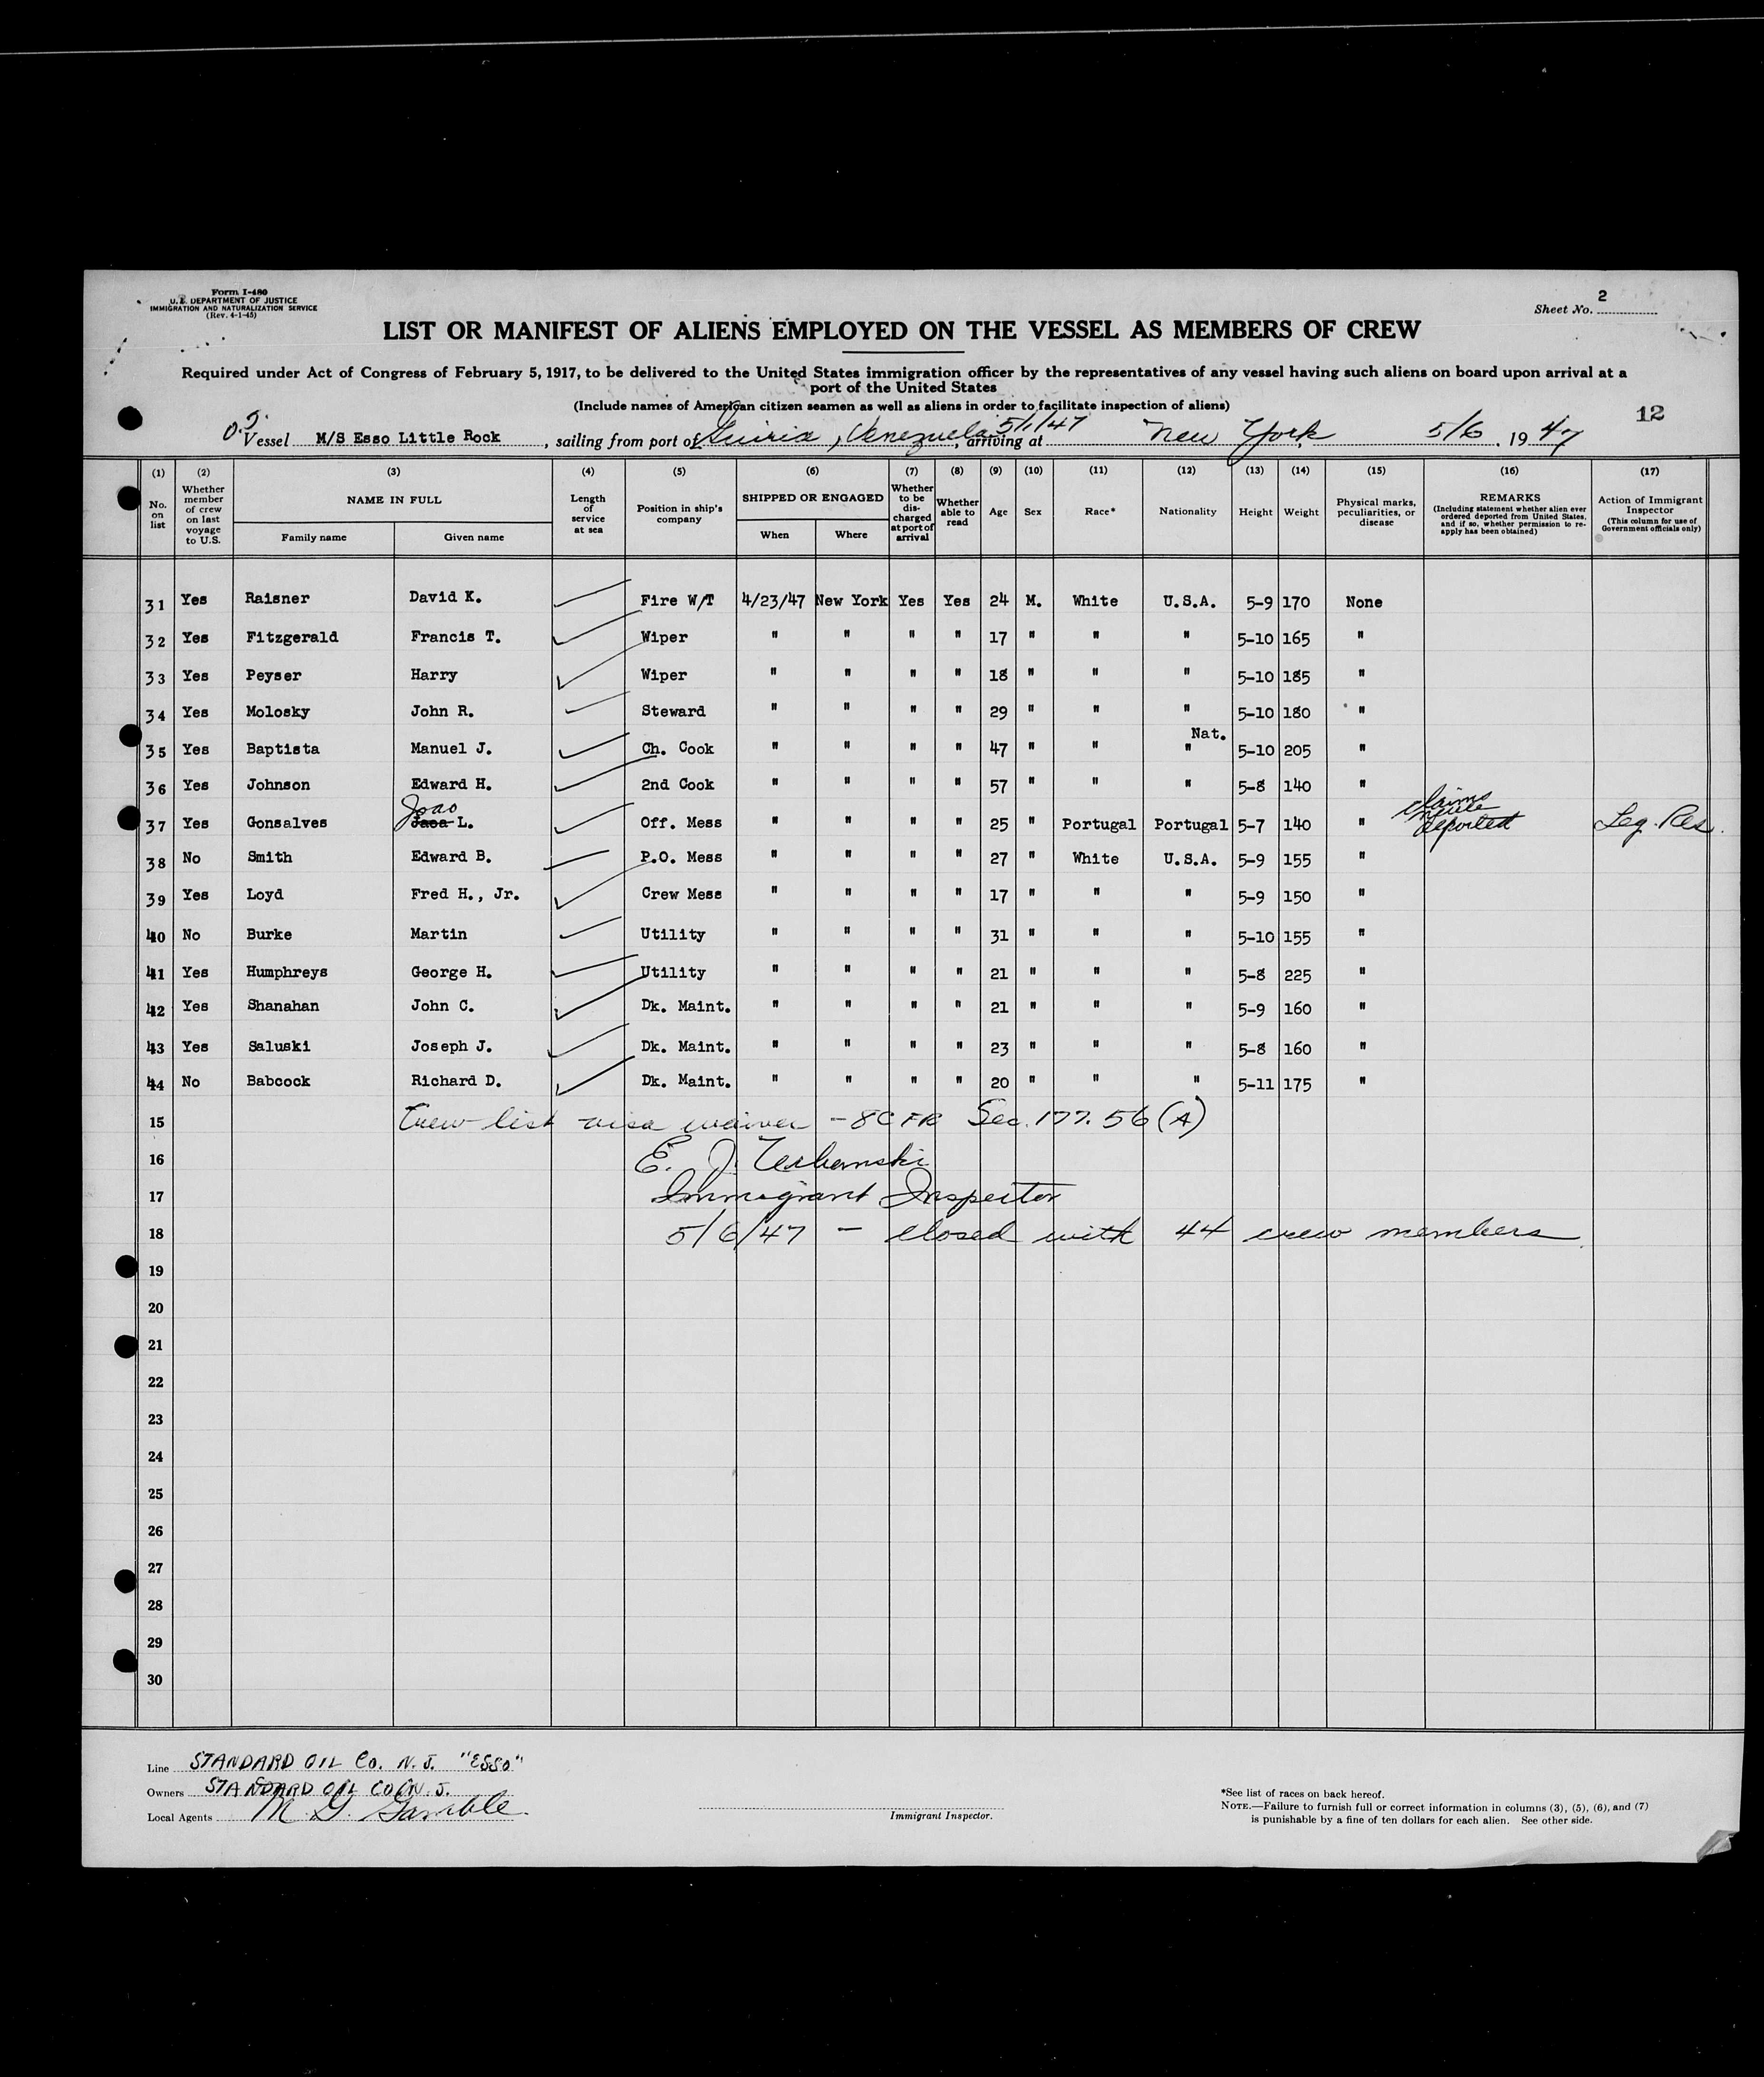 Form I-480
U. S. DEPARTMENT OF JUSTICE
IMMIGRATION AND NATURALIZATION SERVICE
(Rev. 4-1-45)
Sheet No. 2
LIST OR MANIFEST OF ALIENS EMPLOYED ON THE VESSEL AS MEMBERS OF CREW
Required under Act of Congress of February 5, 1917, to be delivered to the United States immigration officer by the representatives of any vessel having such aliens on board upon arrival at a
port of the United States
(Include names of American citizen seamen as well as aliens in order to facilitate inspection of aliens)
12
Vessel M/S Esso Little Rock, sailing from port of Guiria, Venezuela 5/1/47, arriving at New York 5/6, 1947
(1) (2) (3) (4) (5) (6) (7) (8) (9) (10) (11) (12) (13) (14) (15) (16) (17)
No. on list
Whether member of crew on last voyage to U.S.
NAME IN FULL
Family name
Given name
Length of service at sea
Position in ship's company
SHIPPED OR ENGAGED
When
Where
Whether to be discharged at port of arrival
Whether able to read
Age
Sex
Race*
Nationality
Height
Weight
Physical marks, peculiarities, or disease
REMARKS
(Including statement whether alien ever ordered deported from United States, and if so, whether permission to reapply has been obtained)
Action of Immigrant Inspector
(This column for use of Government officials only)
31 Yes Raisner David K. Fire W/T 4/23/47 New York Yes Yes 24 M. White U.S.A. 5-9 170 None
32 Yes Fitzgerald Francis T. Wiper " " " " 17 " " " 5-10 165 "
33 Yes Peyser Harry Wiper " " " " 18 " " " 5-10 185 "
34 Yes Molosky John R. Steward " " " " 29 " " " 5-10 180 "
Nat.
35 Yes Baptista Manuel J. Ch. Cook " " " " 47 " " " 5-10 205 "
36 Yes Johnson Edward H. 2nd Cook " " " " 57 " " " 5-8 140 "
37 Yes Gonsalves Joao L. Off. Mess " " " " 25 " Portugal Portugal 5-7 140 " claims never deported Leg. Res.
38 No Smith Edward B. P.O. Mess " " " " 27 " White U.S.A. 5-9 155 "
39 Yes Loyd Fred H., Jr. Crew Mess " " " " 17 " " " 5-9 150 "
40 No Burke Martin Utility " " " " 31 " " " 5-10 155 "
41 Yes Humphreys George H. Utility " " " " 21 " " " 5-8 225 "
42 Yes Shanahan John C. Dk. Maint. " " " " 21 " " " 5-9 160 "
43 Yes Saluski Joseph J. Dk. Maint. " " " " 23 " " " 5-8 160 "
44 No Babcock Richard D. Dk. Maint. " " " " 20 " " " 5-11 175 "
15 Crew list visa waiver - 8 CFR Sec. 177.56 (A)
16 E. J.
17 Immigrant Inspector
18 5/6/47 - closed with 44 crew members
19
20
21
22
23
24
25
26
27
28
29
30
Line STANDARD OIL Co. N. J. "ESSO"
Owners STANDARD OIL CO N. J.
Local Agents M. G. Gamble
Immigrant Inspector.
*See list of races on back hereof.
NOTE.—Failure to furnish full or correct information in columns (3), (5), (6), and (7)
is punishable by a fine of ten dollars for each alien. See other side.